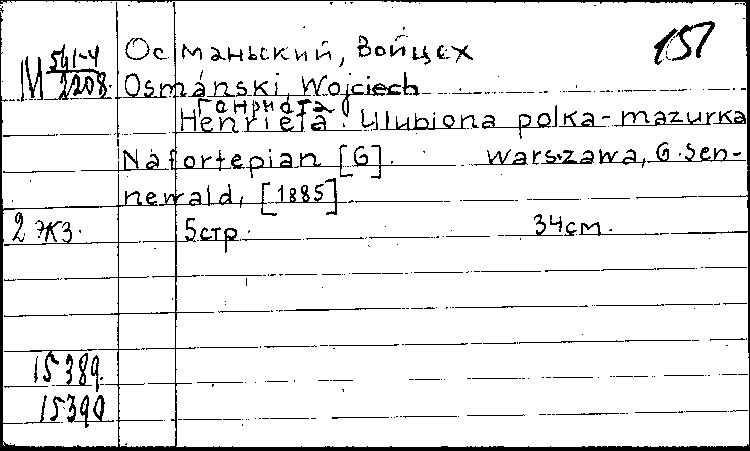 Османьский, Войцех 151
М 541-4
2208. Osmánski, Wojciech
Ганриета
Henrieta. Ulubiona polka-mazurka
Na fortepian [G]. Warszawa, G. Sen-
newald, [1885]
2 экз. 5стр. 34см.
15389.
15390